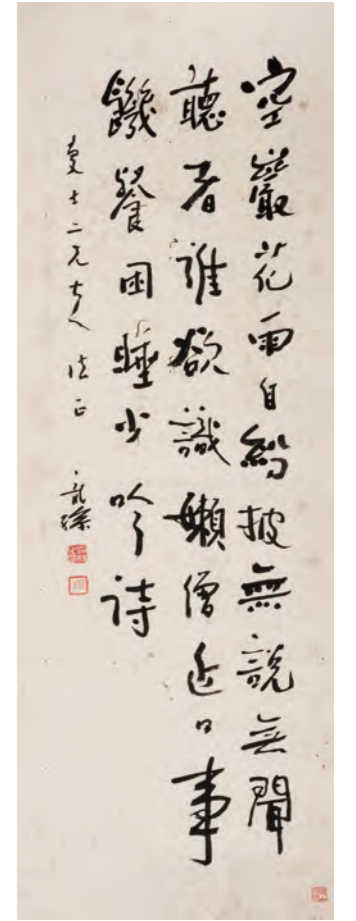 空巖花雨自紛披無說無聞
聽者誰欲識嬾僧近日事
饑餐困睡少吟詩
曼士二兄大人法正